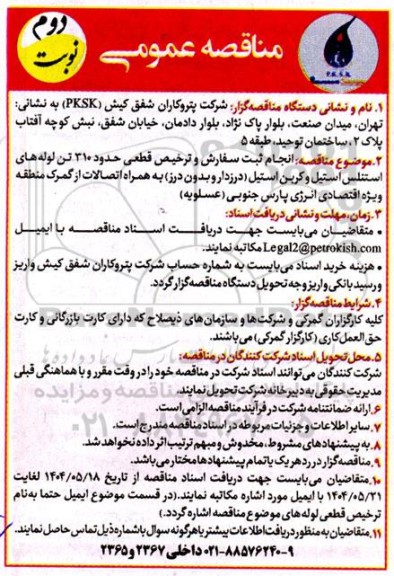 مناقصه عمومی
نوبت دوم
P.K.S.K
۱. نام و نشانی دستگاه مناقصه‌گزار: شرکت پتروکاران شفق کیش (PKSK) به نشانی:
تهران، میدان صنعت، بلوار پاک نژاد، بلوار دادمان، خیابان شفق، نبش کوچه آفتاب
پلاک ۲، ساختمان توحید، طبقه ۵
۲. موضوع مناقصه: انجام ثبت سفارش و ترخیص قطعی حدود ۳۱۰ تن لوله‌های
استنلس استیل و کربن استیل (درزدار و بدون درز) به همراه اتصالات از گمرک منطقه
ویژه اقتصادی انرژی پارس جنوبی (عسلویه)
۳. زمان، مهلت و نشانی دریافت اسناد:
• متقاضیان می‌بایست جهت دریافت اسناد مناقصه با ایمیل
Legal2@petrokish.com مکاتبه نمایند.
• هزینه خرید اسناد می‌بایست به شماره حساب شرکت پتروکاران شفق کیش واریز
و رسید بانکی واریز وجه تحویل دستگاه مناقصه‌گزار گردد.
۴. شرایط مناقصه‌گزار:
کلیه کارگزاران گمرکی و شرکت‌ها و سازمان‌های ذیصلاح که دارای کارت بازرگانی و کارت
حق‌العمل‌کاری (کارگزار گمرکی) می‌باشند.
۵. محل تحویل اسناد شرکت کنندگان در مناقصه:
شرکت کنندگان می‌توانند اسناد شرکت در مناقصه خود را در وقت مقرر و با هماهنگی قبلی
مدیریت حقوقی به دبیرخانه شرکت تحویل نمایند.
۶. ارائه ضمانتنامه شرکت در فرآیند مناقصه الزامی است.
۷. سایر اطلاعات و جزئیات مربوطه در اسناد مناقصه مندرج است.
۸. به پیشنهادهای مشروط، مخدوش و مبهم ترتیب اثر داده نخواهد شد.
۹. مناقصه‌گزار در رد هر یک یا تمام پیشنهادها مختار می‌باشد.
۱۰. متقاضیان می‌بایست جهت دریافت اسناد مناقصه از تاریخ ۱۴۰۴/۰۵/۱۸ لغایت
۱۴۰۴/۰۵/۲۱ با ایمیل مورد اشاره مکاتبه نمایند. (در قسمت موضوع ایمیل حتما به نام
ترخیص قطعی لوله‌های موضوع مناقصه اشاره گردد.)
۱۱. متقاضیان به منظور دریافت اطلاعات بیشتر یا هرگونه سوال با شماره ذیل تماس حاصل نمایند.
۰۲۱-۸۸۵۷۶۲۴۰-۹ داخلی ۲۳۶۷ و ۲۳۶۵